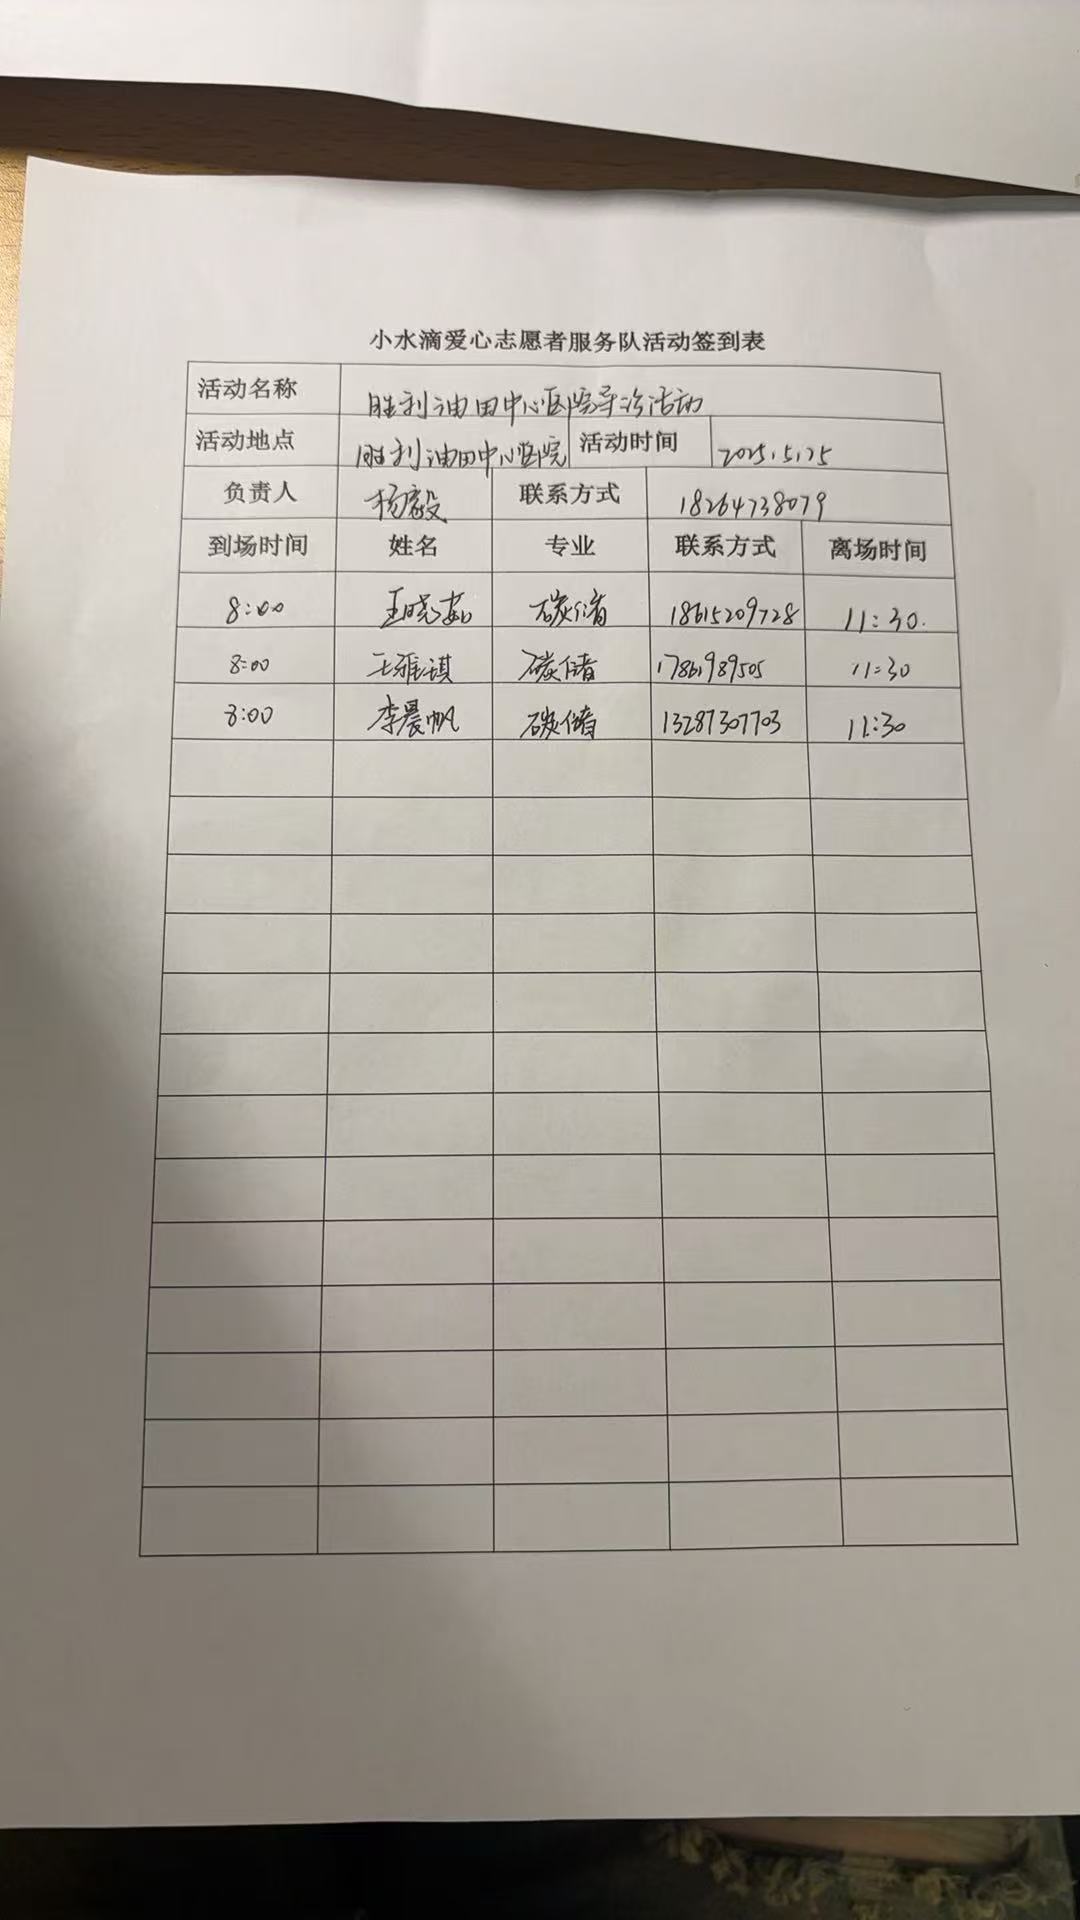 小水滴爱心志愿者服务队活动签到表
活动名称 胜利油田中心医院导诊活动
活动地点 胜利油田中心医院 活动时间 2025.5.25
负责人 杨毅 联系方式 18264738079
到场时间 姓名 专业 联系方式 离场时间
8:00 王晓茹 碳储 18615209728 11:30.
8:00 王雅琪 碳储 17861989505 11:30
8:00 李晨帆 碳储 13287307703 11:30